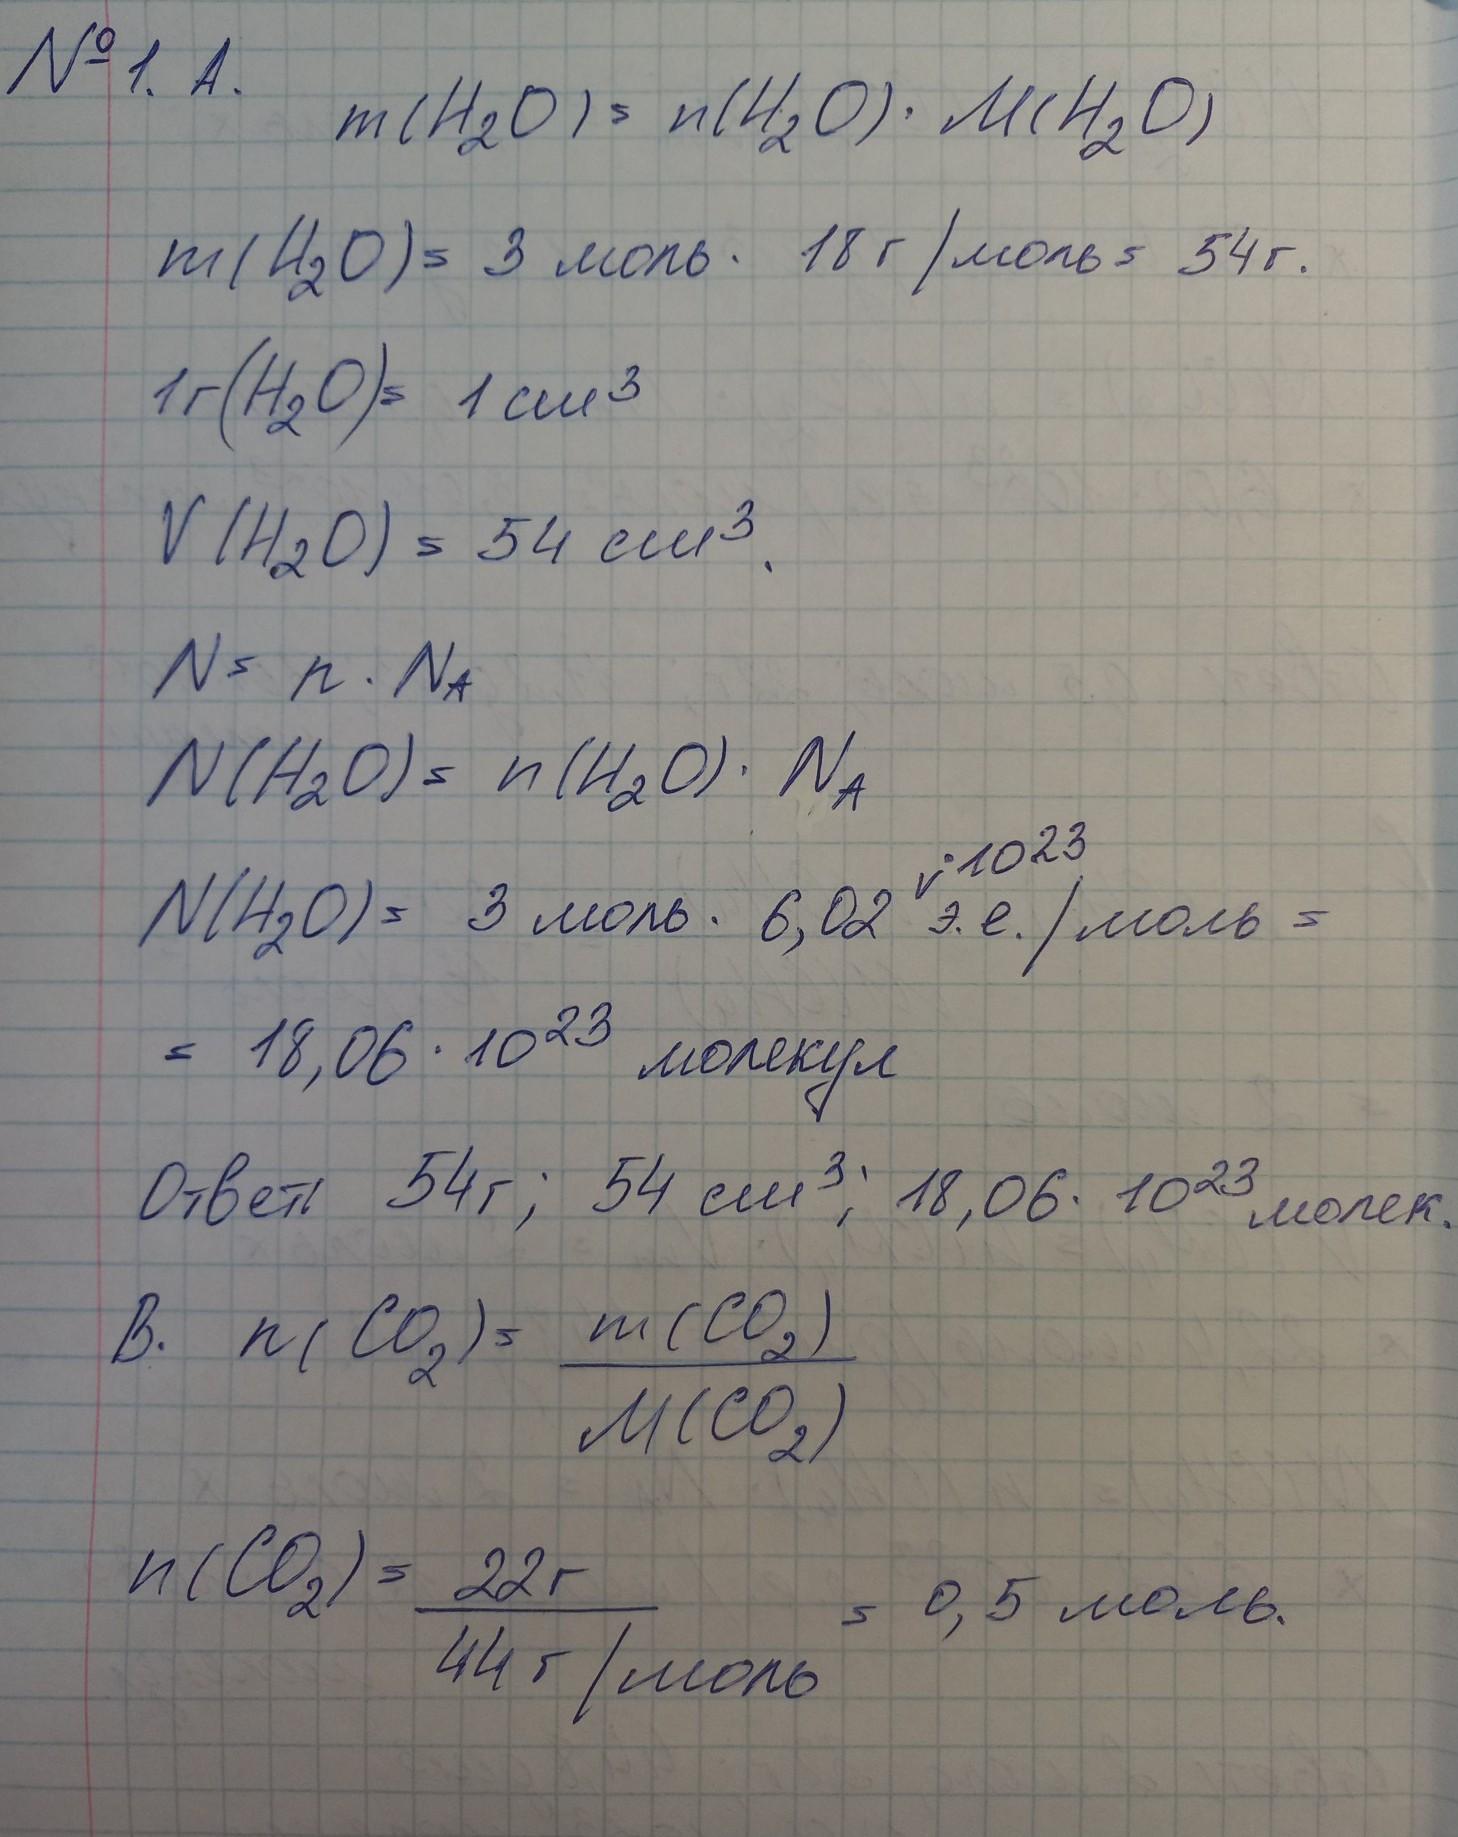 № 1. А.
m(H₂O) = n(H₂O) · M(H₂O)
m(H₂O) = 3 моль · 18 г/моль = 54 г.
1г(H₂O) = 1 см³
V(H₂O) = 54 см³.
N = n · Nᴀ
N(H₂O) = n(H₂O) · Nᴀ
·10²³
N(H₂O) = 3 моль · 6,02 э.е./моль =
= 18,06 · 10²³ молекул
Ответ: 54г; 54 см³; 18,06 · 10²³ молек.
В. n(CO₂) = m(CO₂)
M(CO₂)
n(CO₂) = 22г = 0,5 моль.
44 г/моль